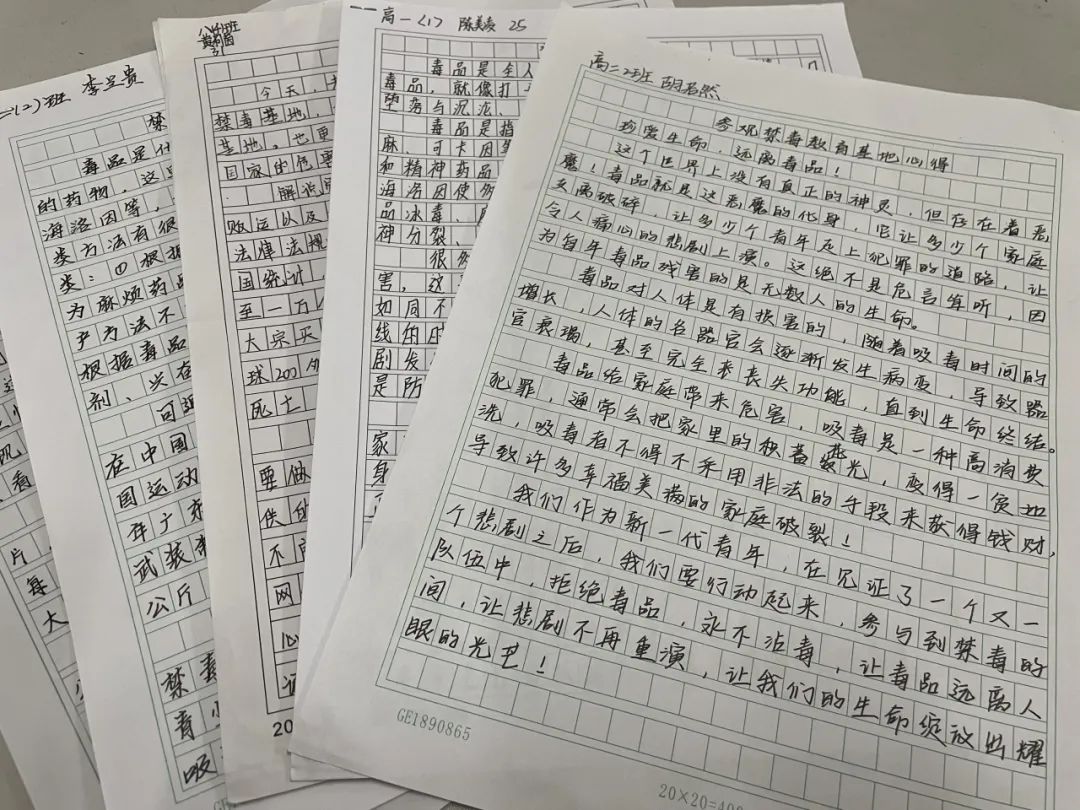 (2)班 李兰贵
禁
毒品是什
的药物，这
海洛因等，
类方法有很
类：①根据
为麻烦药品
产方法不
根据毒品
剂、兴奋
回
在中国
国运动
年广东
武装
公斤
禁毒
青
吸
片
每
大
今天，
禁毒基地，
基地。也更
国家的危害
解说
贩运以及
法律法规
国统计，
至一万
大宗买
球200多
死亡
要做
供的
不
网
心
20
高一(1) 陈美凌 25
毒品是全人
毒品，就像打
堕落与沉沦、
毒品是指
麻、可卡因
和精神药品
海洛因使
品冰毒、
神分裂、
很
害，这
如同不
线的
剧发
是防
家
身
高二2班 胡若然
参观禁毒教育基地心得
珍爱生命，远离毒品！
这个世界上没有真正的神灵，但存在着恶
魔！毒品就是这恶魔的化身，它让多少个家庭
支离破碎，让多少个青年走上犯罪的道路，让
令人痛心的悲剧上演。这绝不是危言耸听，因
为每年毒品残害的是无数人的生命。
毒品对人体是有损害的，随着吸毒时间的
增长，人体的各器官会逐渐发生病变，导致器
官衰竭，甚至完全丧失功能，直到生命终结。
毒品给家庭带来危害，吸毒是一种高消费
犯罪，通常会把家里的积蓄耗光，变得一贫如
洗，吸毒者不得不采用非法的手段来获得钱财，
导致许多幸福美满的家庭破裂！
我们作为新一代青年，在见证了一个又一
个悲剧之后，我们要行动起来，参与到禁毒的
队伍中，拒绝毒品，永不沾毒，让毒品远离人
间，让悲剧不再重演，让我们的生命绽放出耀
眼的光芒！
GE1890865
20×20=400